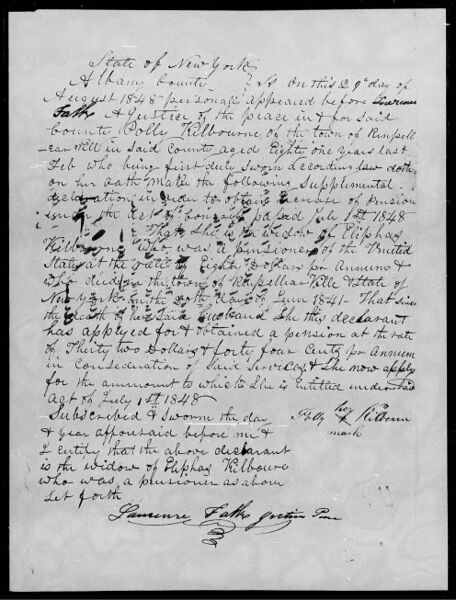 State of New York
Albany County } SS On this 29th day of
August 1848 personally appeared before Lawrence
Falks A Justice of the peace in & for said
County Polly Kilbourne of the town of Renssell
-earVill in said County aged Eighty one years last
Feb who being first duly Sworn according law doth
on her oath make the following Supplemental
declaration in order to obtain increase of Pension
under the Act of Congress passed July 1st 1848
That She is the widow of Eliphas
Kilbourne who was a pensioner of the United
States at the rate of Eighty Dollars pr Annum &
who died in the town of Renssellear Ville & State of
New York on the day of June 1841- That since
the death of her said husband She this declarant
has applyed for & obtained a pension at the rate
of Thirty two Dollars & forty four Cents pr Annum
in Consideration of Said Services & She now apply
for the ammount to which She is Entitled under said
Act of July 1st 1848
Subscribed & Sworn the day
& year afforesaid before me &
I Certify that the above declarant
is the widow of Eliphas Kilbourne
who was a pensioner as above
Set forth
Polly her X mark Kilbourne
Lawrence Falks Justice Peace